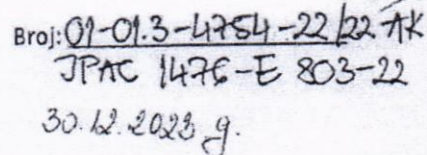 Broj: 01-01.3-4754-22/22 AK
JPAC 1476-E 803-22
30.12.2022 g.